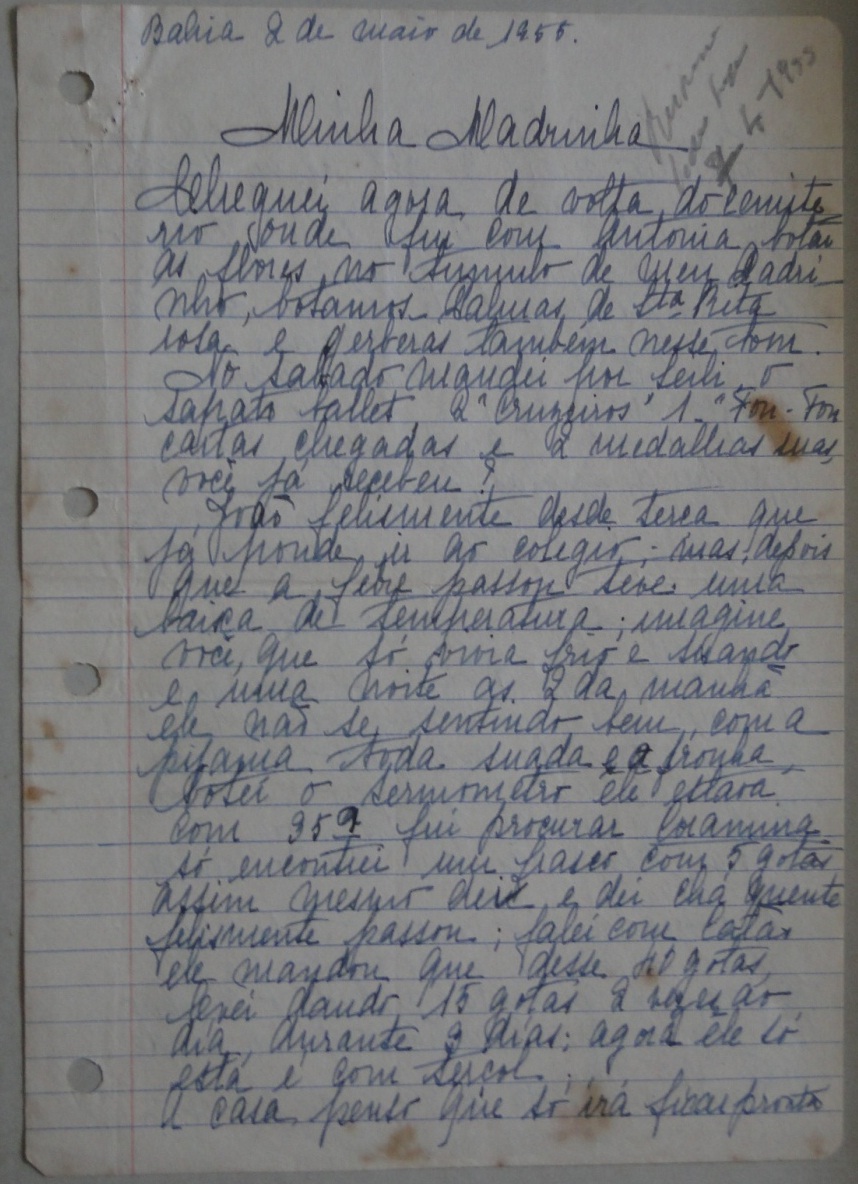 Bahia 2 de maio de 1955.
4-1955
Minha Madrinha
Cheguei agora de volta do cemite
rio onde fui com Antonia botar
as flores no tumulo de meu Padri
nho, botamos Palmas de Sta Rita
rosa e gerberas também nesse tom.
No sabado mandei por o
sapato ballet 2 "Cruzeiros" 1 "Fon-Fon
cartas chegadas e 2 medalhas suas,
você já recebeu?
João felismente desde terca que
já poude ir ao colegio; mas, depois
que a febre passou teve uma
baixa de temperatura; imagine
você, que só vivia frio e suando
e uma noite as 2 da manhã
ele não se sentindo bem, com a
pijama toda suada e a fronha,
botei o termometro ele estava
com 35º fui procurar Coramina
só encontrei um frasco com 5 gotas
assim mesmo dei e dei chá quente
felismente passou; falei com
ele mandou que desse 40 gotas,
levei dando 15 gotas 2 vezes ao
dia, durante 3 dias; agora ele só
está é com terçol.
A casa penso que só irá ficar pronta